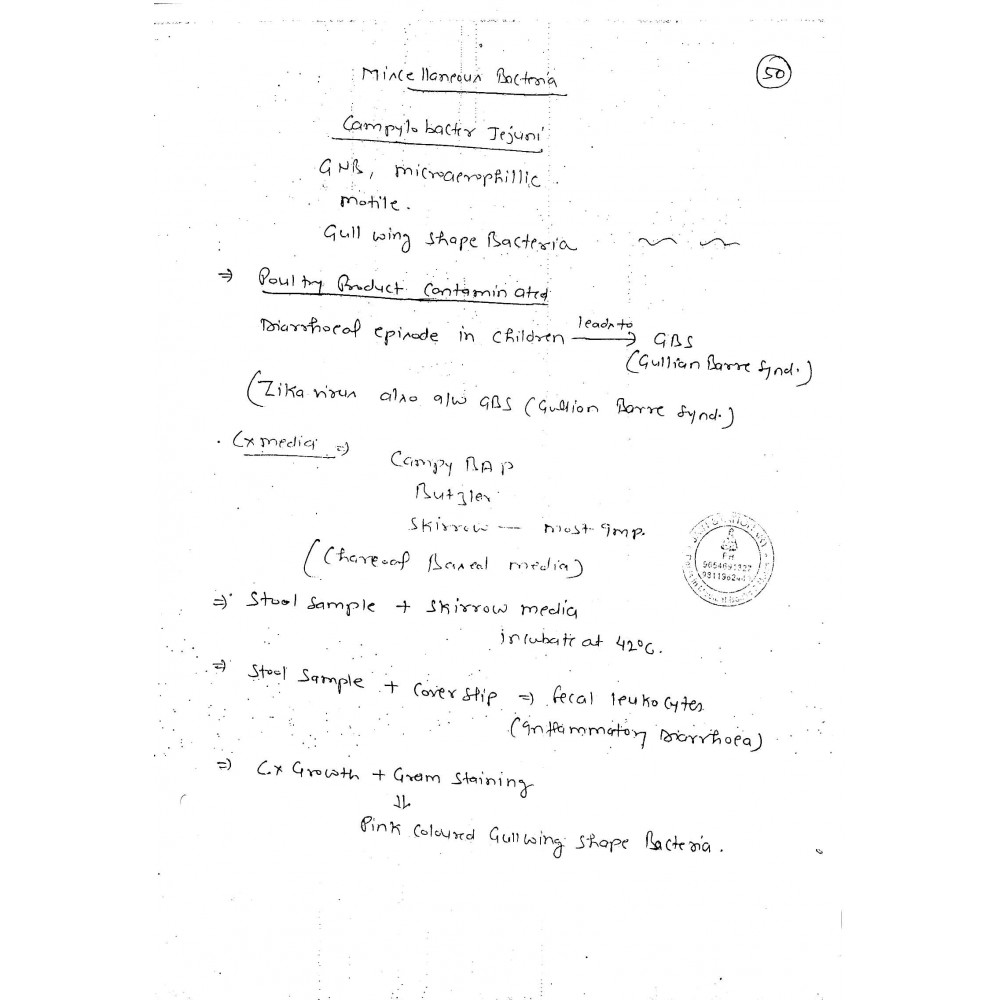 50
Miscellaneous Bacteria
Campylobacter Jejuni
GNB, microaerophillic.
motile.
Gull wing shape Bacteria
⇒ Poultry Product contaminated
Diarrhoeal episode in children leads to → GBS
(Gullian Barre Synd.)
(Zika virus also a/w GBS (Gullian Barre Synd.)
Cx media ⇒
Campy BAP
Butzler
Skirrow — most Imp.
(Charcoal Based media)
⇒ Stool Sample + Skirrow media
incubate at 42°C.
⇒ Stool Sample + Cover slip ⇒ fecal leukocytes
(Inflammatory Diarrhoea)
⇒ Cx Growth + Gram Staining
⇓
Pink Coloured Gull wing shape Bacteria.